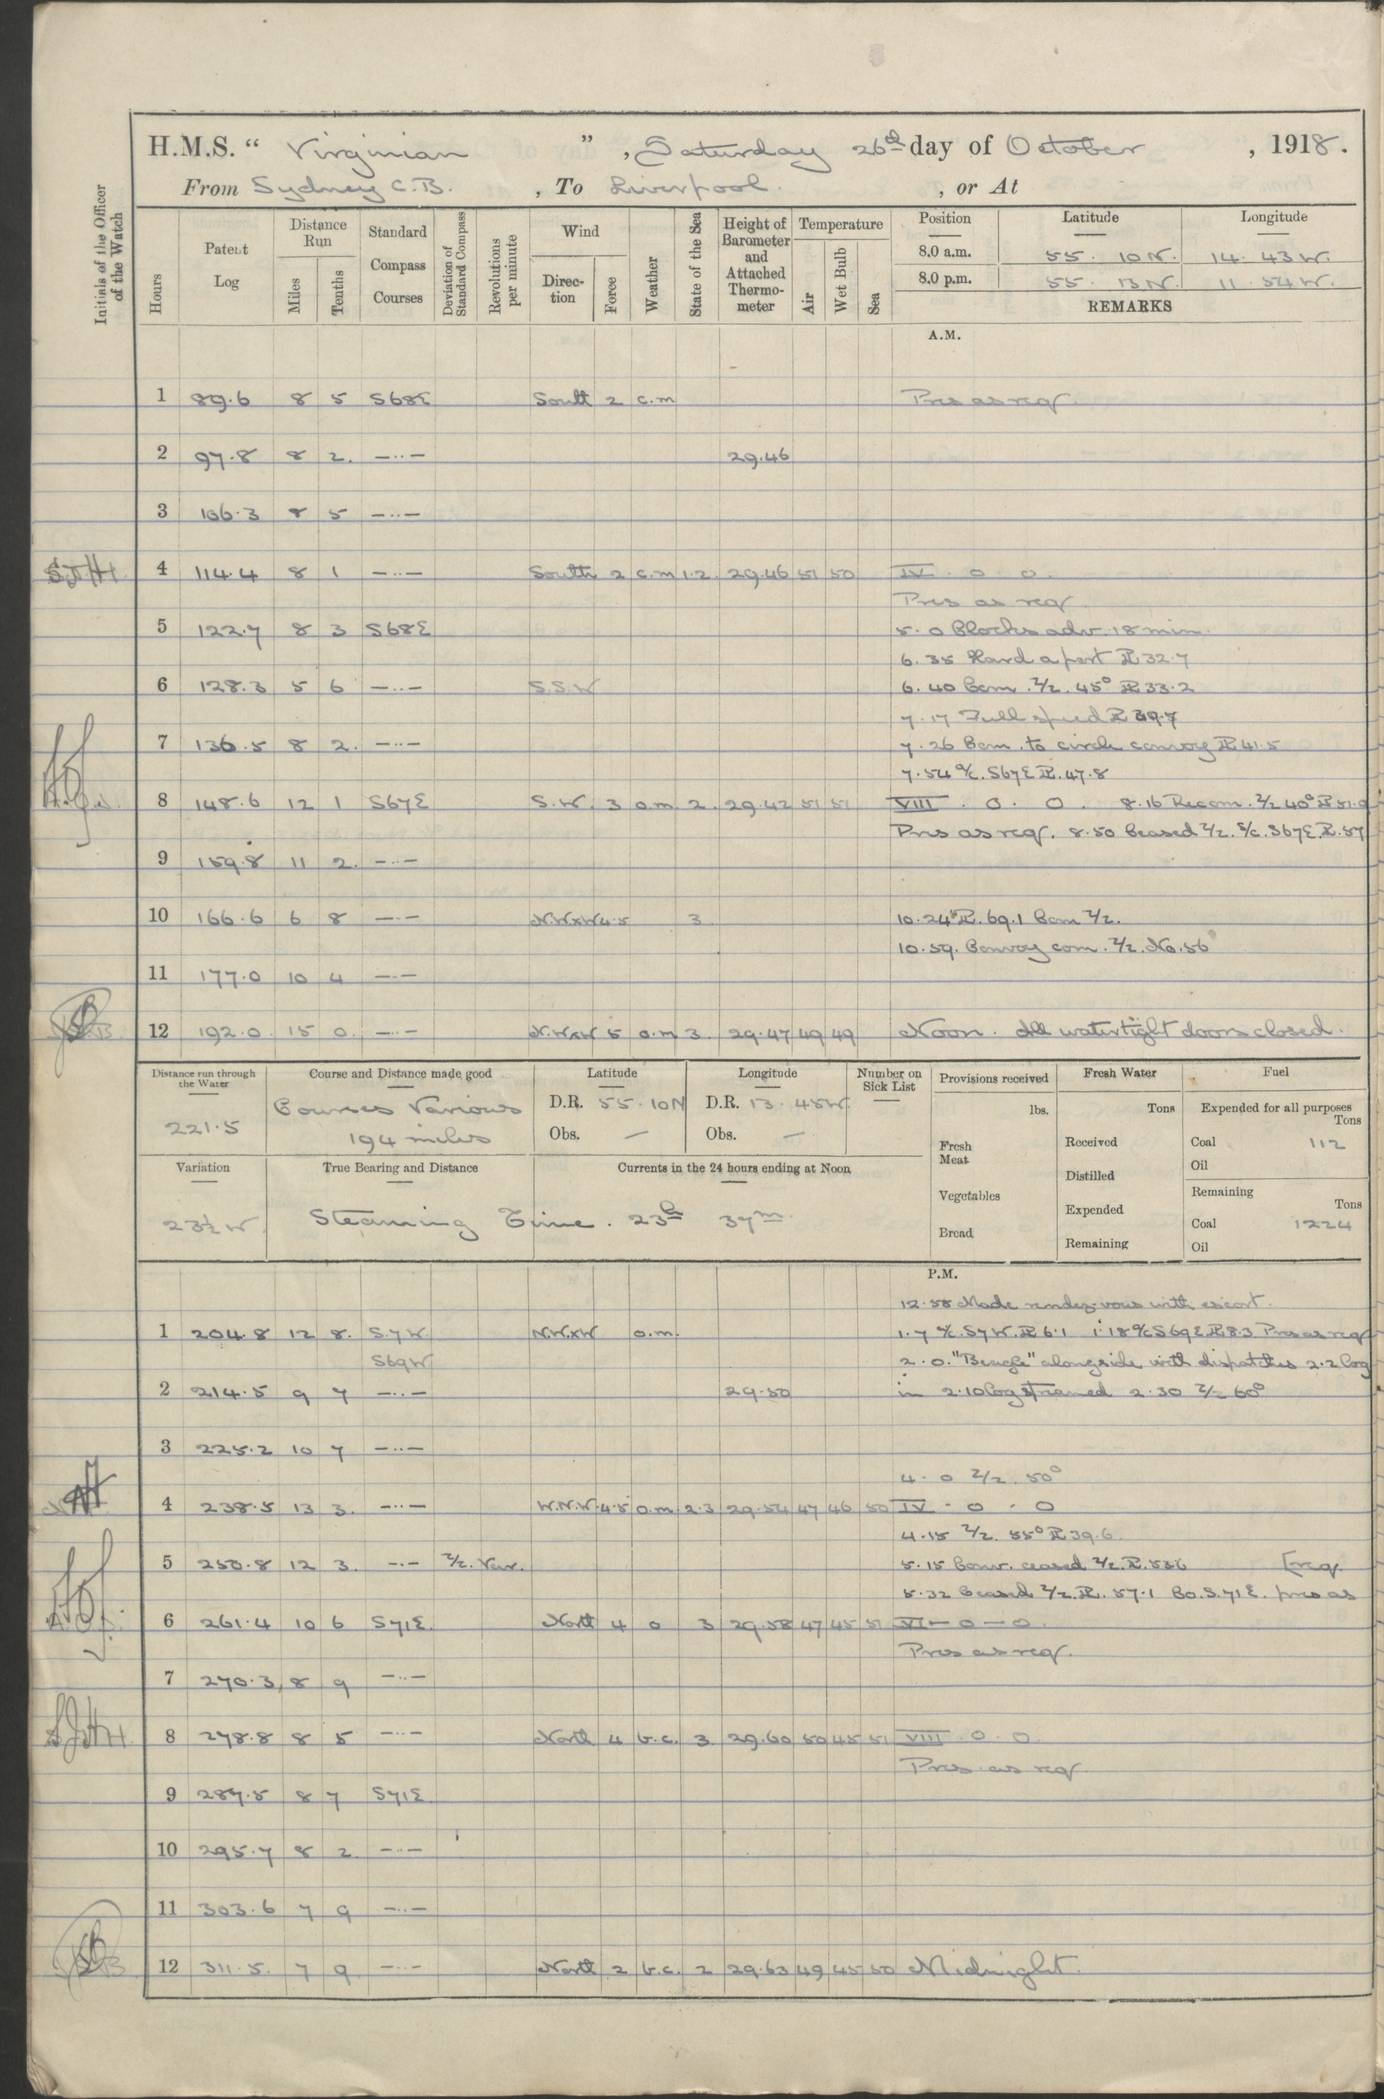 H.M.S. “ Virginian ” , Saturday 26th day of October , 1918.
From Sydney C.B. , To Liverpool. , or At
Initials of the Officer of the Watch
Hours
Patent Log
Distance Run
Miles
Tenths
Standard Compass Courses
Deviation of Standard Compass
Revolutions per minute
Wind
Direction
Force
Weather
State of the Sea
Height of Barometer and Attached Thermometer
Temperature
Air
Wet Bulb
Sea
Position Latitude Longitude
8.0 a.m. 55. 10 N. 14. 43 W.
8.0 p.m. 55. 13 N. 11. 54 W.
REMARKS
A.M.
1 89.6 8 5 S68E South 2 c.m Pres as req
2 97.8 8 2. —..— 29.46
3 106.3 8 5 —..—
4 114.4 8 1 —..— South 2 c.m 1.2 29.46 51 50 IV . 0 0
Pres as req
5 122.7 8 3 S68E 5.0 Clocks adv. 18 min.
6.35 Hard a port PL 32.7
6 128.3 5 6 —..— S.S.W 6.40 Com. Z/z. 45° PL 33.2
7.17 Full speed PL 39.7
7 136.5 8 2. —..— 7.26 Com. to circle convoy PL 41.5
7.54 a/c. S67E PL. 47.8
8 148.6 12 1 S67E S.W. 3 o.m 2. 29.42 51 51 VIII . 0 . 0 . 8.16 Recom. Z/z 40° PL 51.9
Pres as req. 8.50 Ceased Z/z. S/c. S67E. PL. 57
9 159.8 11 2. —..—
10 166.6 6 8 —..— N.WxW 4.5 3 10.24 PL. 69.1 Com Z/z.
10.59. Convoy com. Z/z. No. 56
11 177.0 10 4 —..—
12 192.0 15 0. —..— N.WxW 5 o.m 3. 29.47 49 49 Noon. All watertight doors closed.
Distance run through the Water
221.5
Course and Distance made good
Courses Various
194 miles
Latitude
D.R. 55.10N
Obs. —
Longitude
D.R. 13. 45W.
Obs. —
Number on Sick List
Variation
23½ W.
True Bearing and Distance
Currents in the 24 hours ending at Noon
Steaming Time. 23h 37m
Provisions received
lbs.
Fresh Meat
Vegetables
Bread
Fresh Water
Tons
Received
Distilled
Expended
Remaining
Fuel
Expended for all purposes
Tons
Coal 112
Oil
Remaining
Tons
Coal 1224
Oil
P.M.
12.58 Made rendez-vous with escort.
1 204.8 12 8. S.7W. N.WxW o.m. 1.7 a/c. S7W. PL 6.1 1.18 a/c S69E PL 8.3 Pres as req
S69W 2.0. "Beagle" alongside with dispatches 2.2 log
2 214.5 9 7 —..— 29.50 in 2.10 log streamed 2.30 Z/z 60°
3 225.2 10 7 —..—
4.0 Z/z. 50°
4 238.5 13 3. —..— W.N.W. 4.5 o.m 2.3 29.54 47 46 50 IV . 0 . 0
4.15 Z/z. 55° PL 39.6
5 250.8 12 3. —..— Z/z. Var. 5.15 Conv. ceased Z/z. PL. 53.6 [req.
5.32 Ceased Z/z. PL. 57.1 Co. S.71E. pres as
6 261.4 10 6 S71E. North 4 o 3 29.58 47 45 51 VI — 0 — 0
Pres as req.
7 270.3 8 9 —..—
8 278.8 8 5 —..— North 4 b.c. 3 29.60 50 45 51 VIII . 0 . 0
Pres as req
9 287.5 8 7 S71E
10 295.7 8 2 —..—
11 303.6 7 9 —..—
12 311.5. 7 9 —..— North 2 b.c. 2 29.63 49 45 50 Midnight.